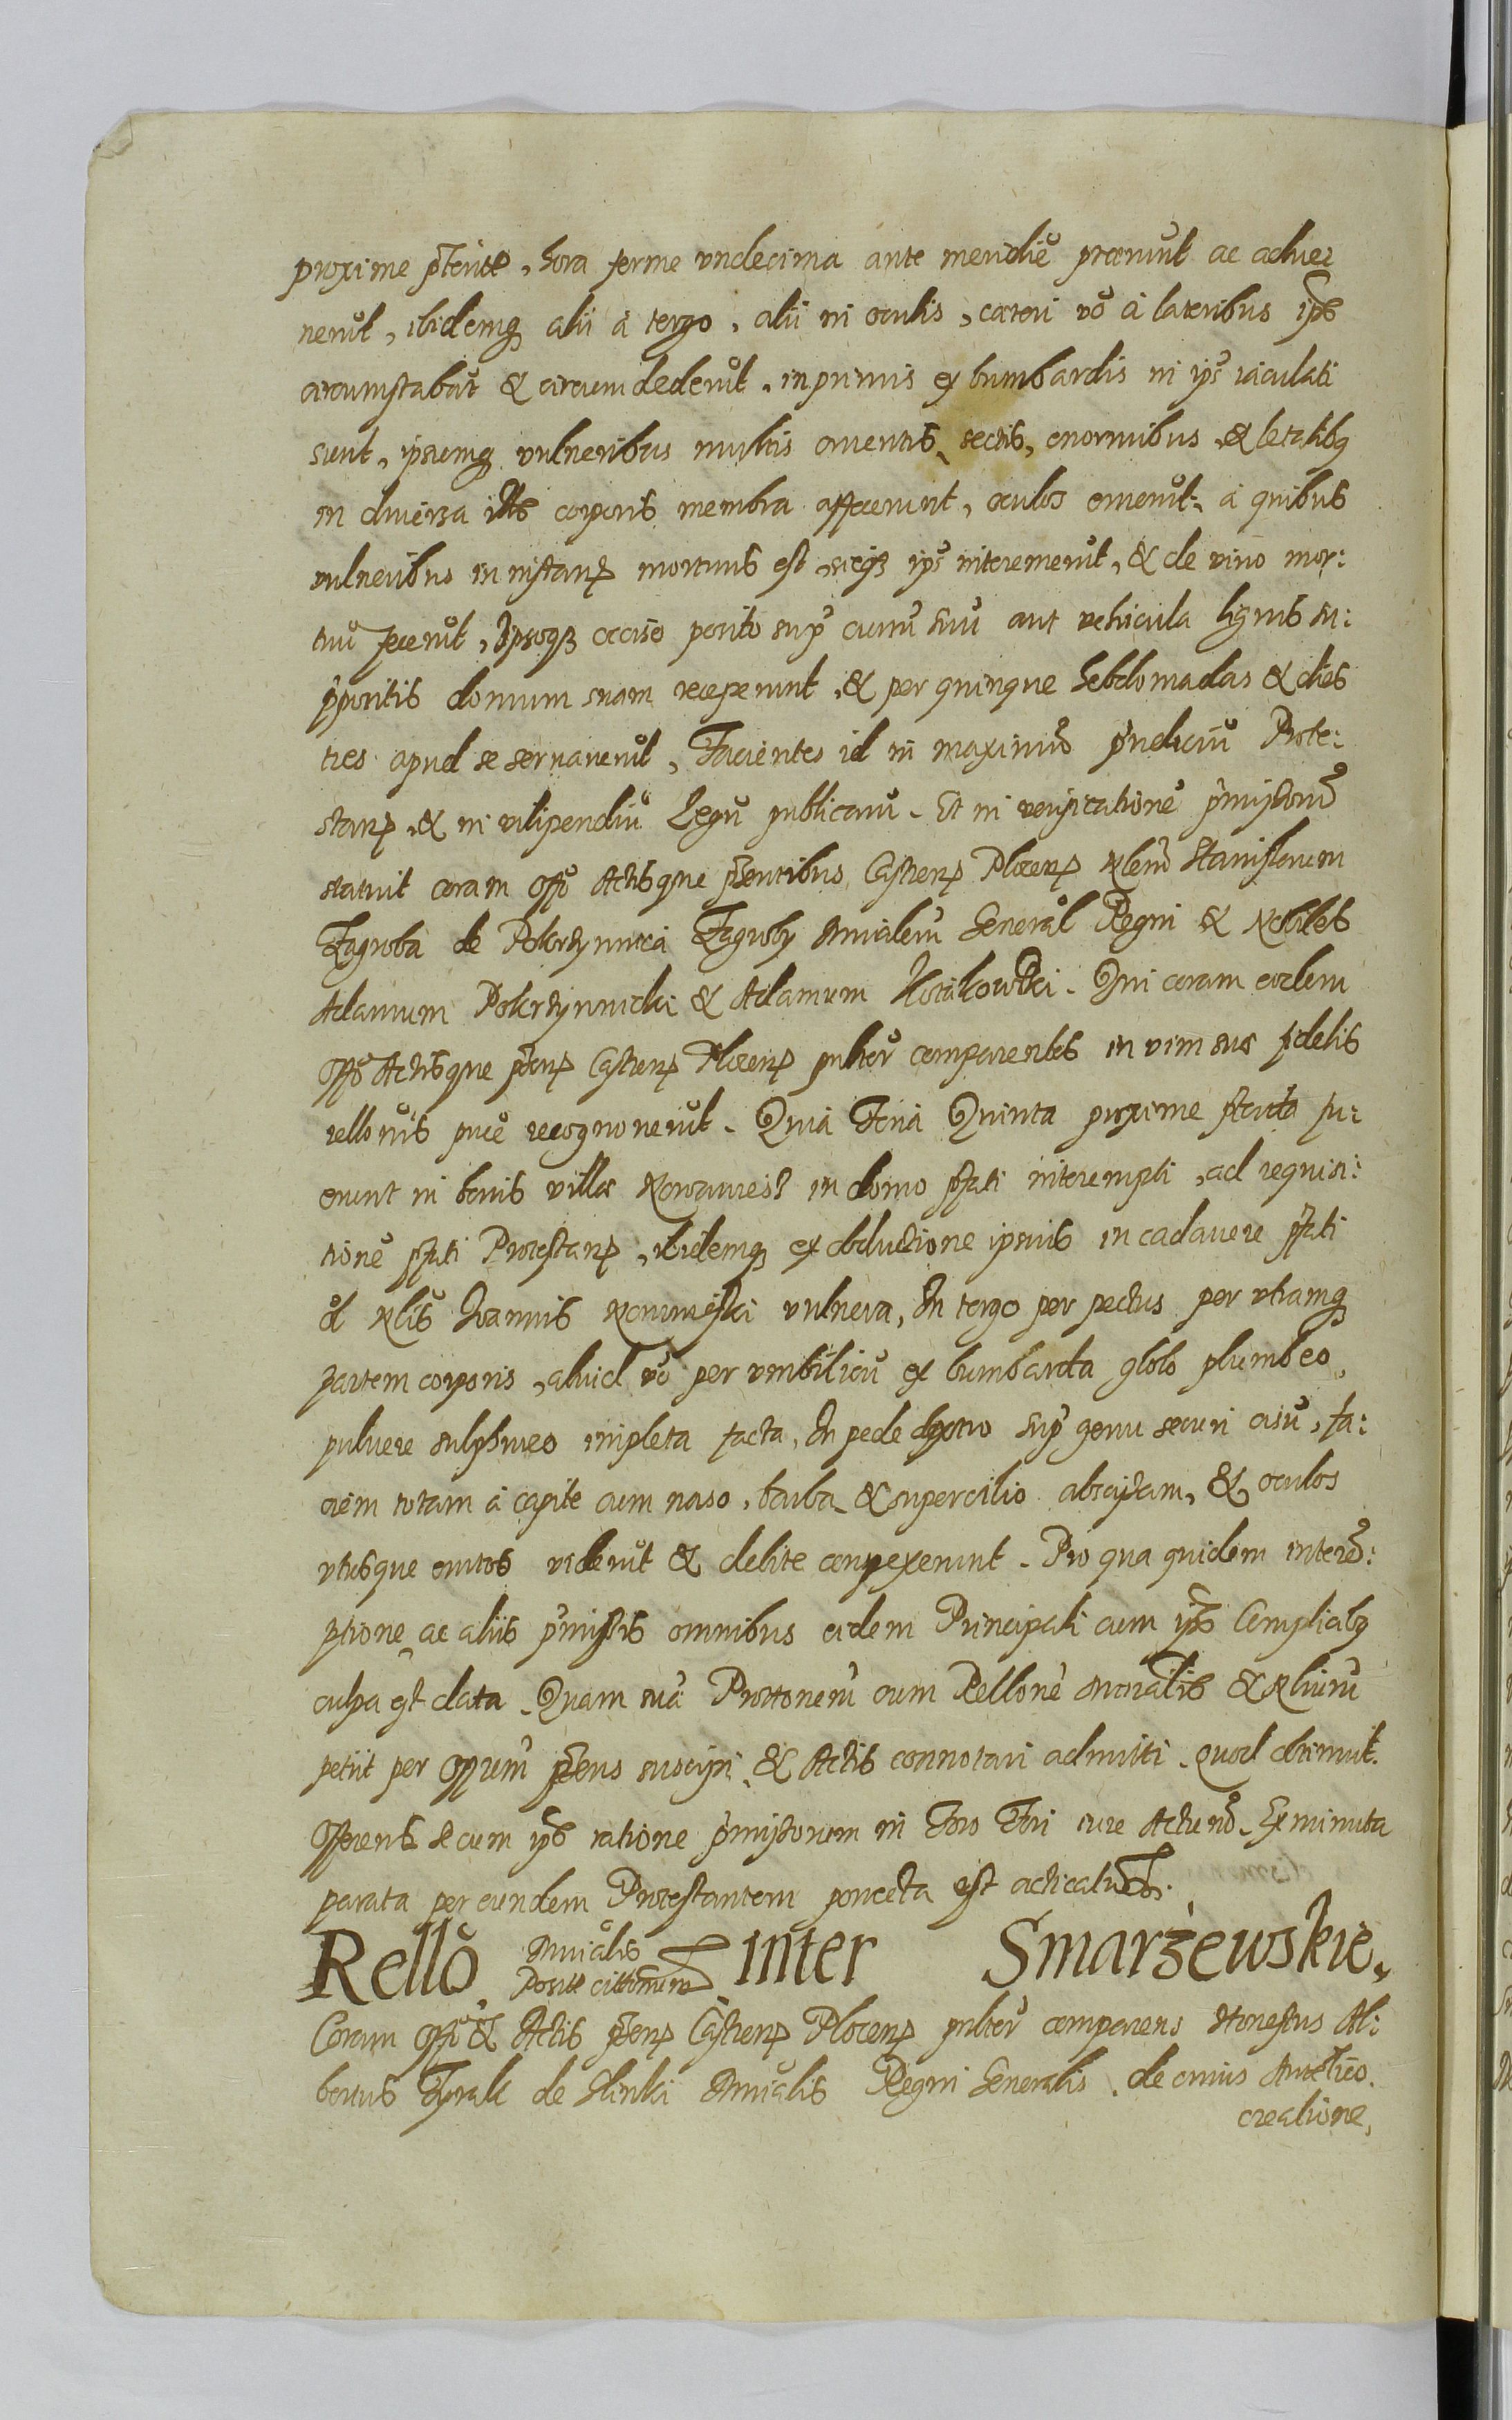 proxime p̃terite, hora ferme vndecima ante meridiē praeniūt ac adue:
nerūt, ibidemq; alii à tergo, alii in oculis, caeteri vō à lateribus ip̄s
circumstabāt & circumdederūt, inprimis ex bumbardis in ip̄s iaculati
sunt, ipsumq; vulneribus multis cruentis, sectis, enormibus, & letalibq;
in diuersa ill̄s corporis membra affecerunt, oculos eruerūt: à quibus
vulneribus in instanti mortuus est, sicq; ip̄s interemerūt, & de viuo mor:
tuū fecerūt, Ipsoq; occiso posito sup̄ currū suū aut vehicula lignis su:
p̄positis domum suam receperunt, & per quinque hebdomadas & dies
tres apud se seruauerūt, Facientes id in maximū p̄iudiciū Prote:
stan̄, & in vilipendiū Legū publicarū. Et in verificationē p̄missorū
statuit coram Off̄o Actisque p̄sentibus Castren̄ Plocen̄ Nlem̄ Stanislaum
Zagroba de Pokrzywnica Zagroby Mnīalem̄ General Regni & Nobiles
Adamum Pokrzywnicki & Adamum Kosakowski. Qui coram eodem
Off̄o Actisque p̄sen̄ Castren̄ Plocen̄ pnlter̄ comparentes in vim suae fidelis
rellōnis puce recognouerūt. Quia Feria Quinta proxime p̄terita fu:
erunt in bonis villae Nowawiesz in domo p̄fati interempti, ad requisi:
tionē p̄fati Protestan̄, ibidemq; ex obductione ipsius in cadauere p̄fati
ol Nlis Ioannis Nowowieski vulnera, In tergo per pectus per vtramq;
partem corporis, aliud vō per vmbilicū ex bumbarda globo plumbeo,
puluere sulphureo impleta facta, In pede dextro sup̄ genu securi cisū, fa:
ciem totam à capite cum naso, barba & supercilio abscissam, & oculos
vtrosque erutos viderūt & debite conspexerunt. Pro qua quidem interē:
ptione ac aliis p̄missis omnibus eidem Principali cum ip̄s Complicibq;
culpa est data. Quam suā Prottonem̄ cum Rellonē Mnīalis & Nlium̄
petiit per Offium̄ p̄sens suscipi, & Actis connotari admitti. quod obtinuit.
Offerens se cum ip̄s ratione p̄missorum in Foro Fori iure Acturū. Ex minuta
parata per eundem Protestantem porrecta est acticatum.
Rellō Mnīalis Posit̄e citt̄onum inter Smarżewskie.
Coram Off̄o & Actis p̄sen̄ Castren̄ Plocen̄ pnlter̄ comparens Honestus Al:
bertus de Slinki Mnīalis Regni Generalis, de cuius Autētico.
creatione,